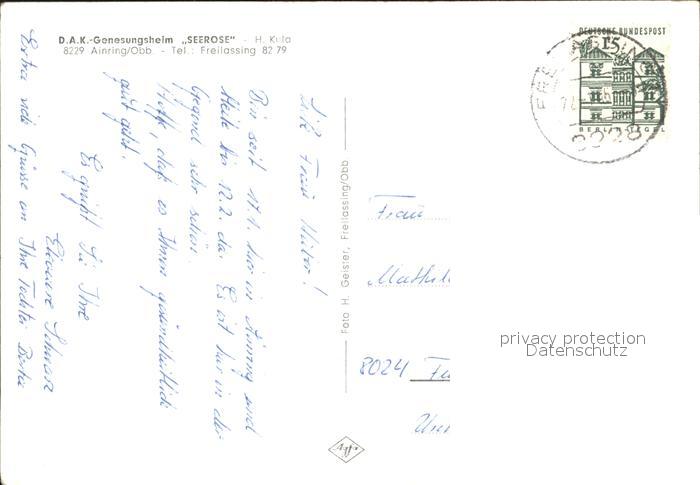 D.A.K.-Genesungsheim „SEEROSE" - H. Kula
8229 Ainring/Obb. - Tel.: Freilassing 82 79
Frau !
Bin seit 17.1. hier in Ainring und
bleibe bis 12.2. da. Es ist hier in der
Gegend sehr schön.
Hoffe, daß es Ihnen gesundheitlich
gut geht.
Es grüßt Sie Ihre
Schwarz
Extra viele Grüsse an Ihre Tochter
Foto H. Geister, Freilassing/Obb
Agfa
DEUTSCHE BUNDESPOST
15
BERLIN-TEGEL
FREILASSING
8228
Frau
Mathil
8024
privacy protection
Datenschutz